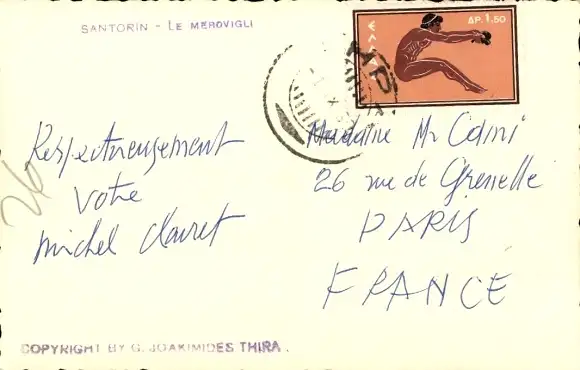 SANTORIN - LE MEROVIGLI
ΕΛΛΑΣ
ΔΡ. 1,50
Respectueusement
Votre
Michel
Madame M
26 rue de Grenelle
PARIS
FRANCE
26
COPYRIGHT BY G. JOAKIMIDES THIRA.